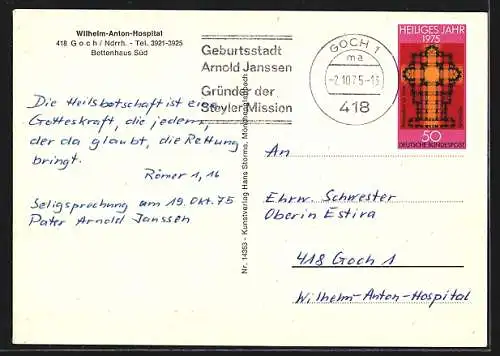 Wilhelm-Anton-Hospital
418 Goch/Ndrrh. - Tel. 3921-3925
Bettenhaus Süd
Geburtsstadt
Arnold Janssen
Gründer der
Steyler Mission
GOCH 1
ma
-2.10.75-13
418
HEILIGES JAHR
1975
50
DEUTSCHE BUNDESPOST
Die Heilsbotschaft ist eine
Gotteskraft, die jedem,
der da glaubt, die Rettung
bringt.
Römer 1, 16
Seligsprechung am 19. Okt. 75
Pater Arnold Janssen
Nr. 14353 - Kunstverlag Hans Storms, Mönchengladbach
An
Ehrw. Schwester
Oberin Estira
418 Goch 1
Wilhelm-Anton-Hospital